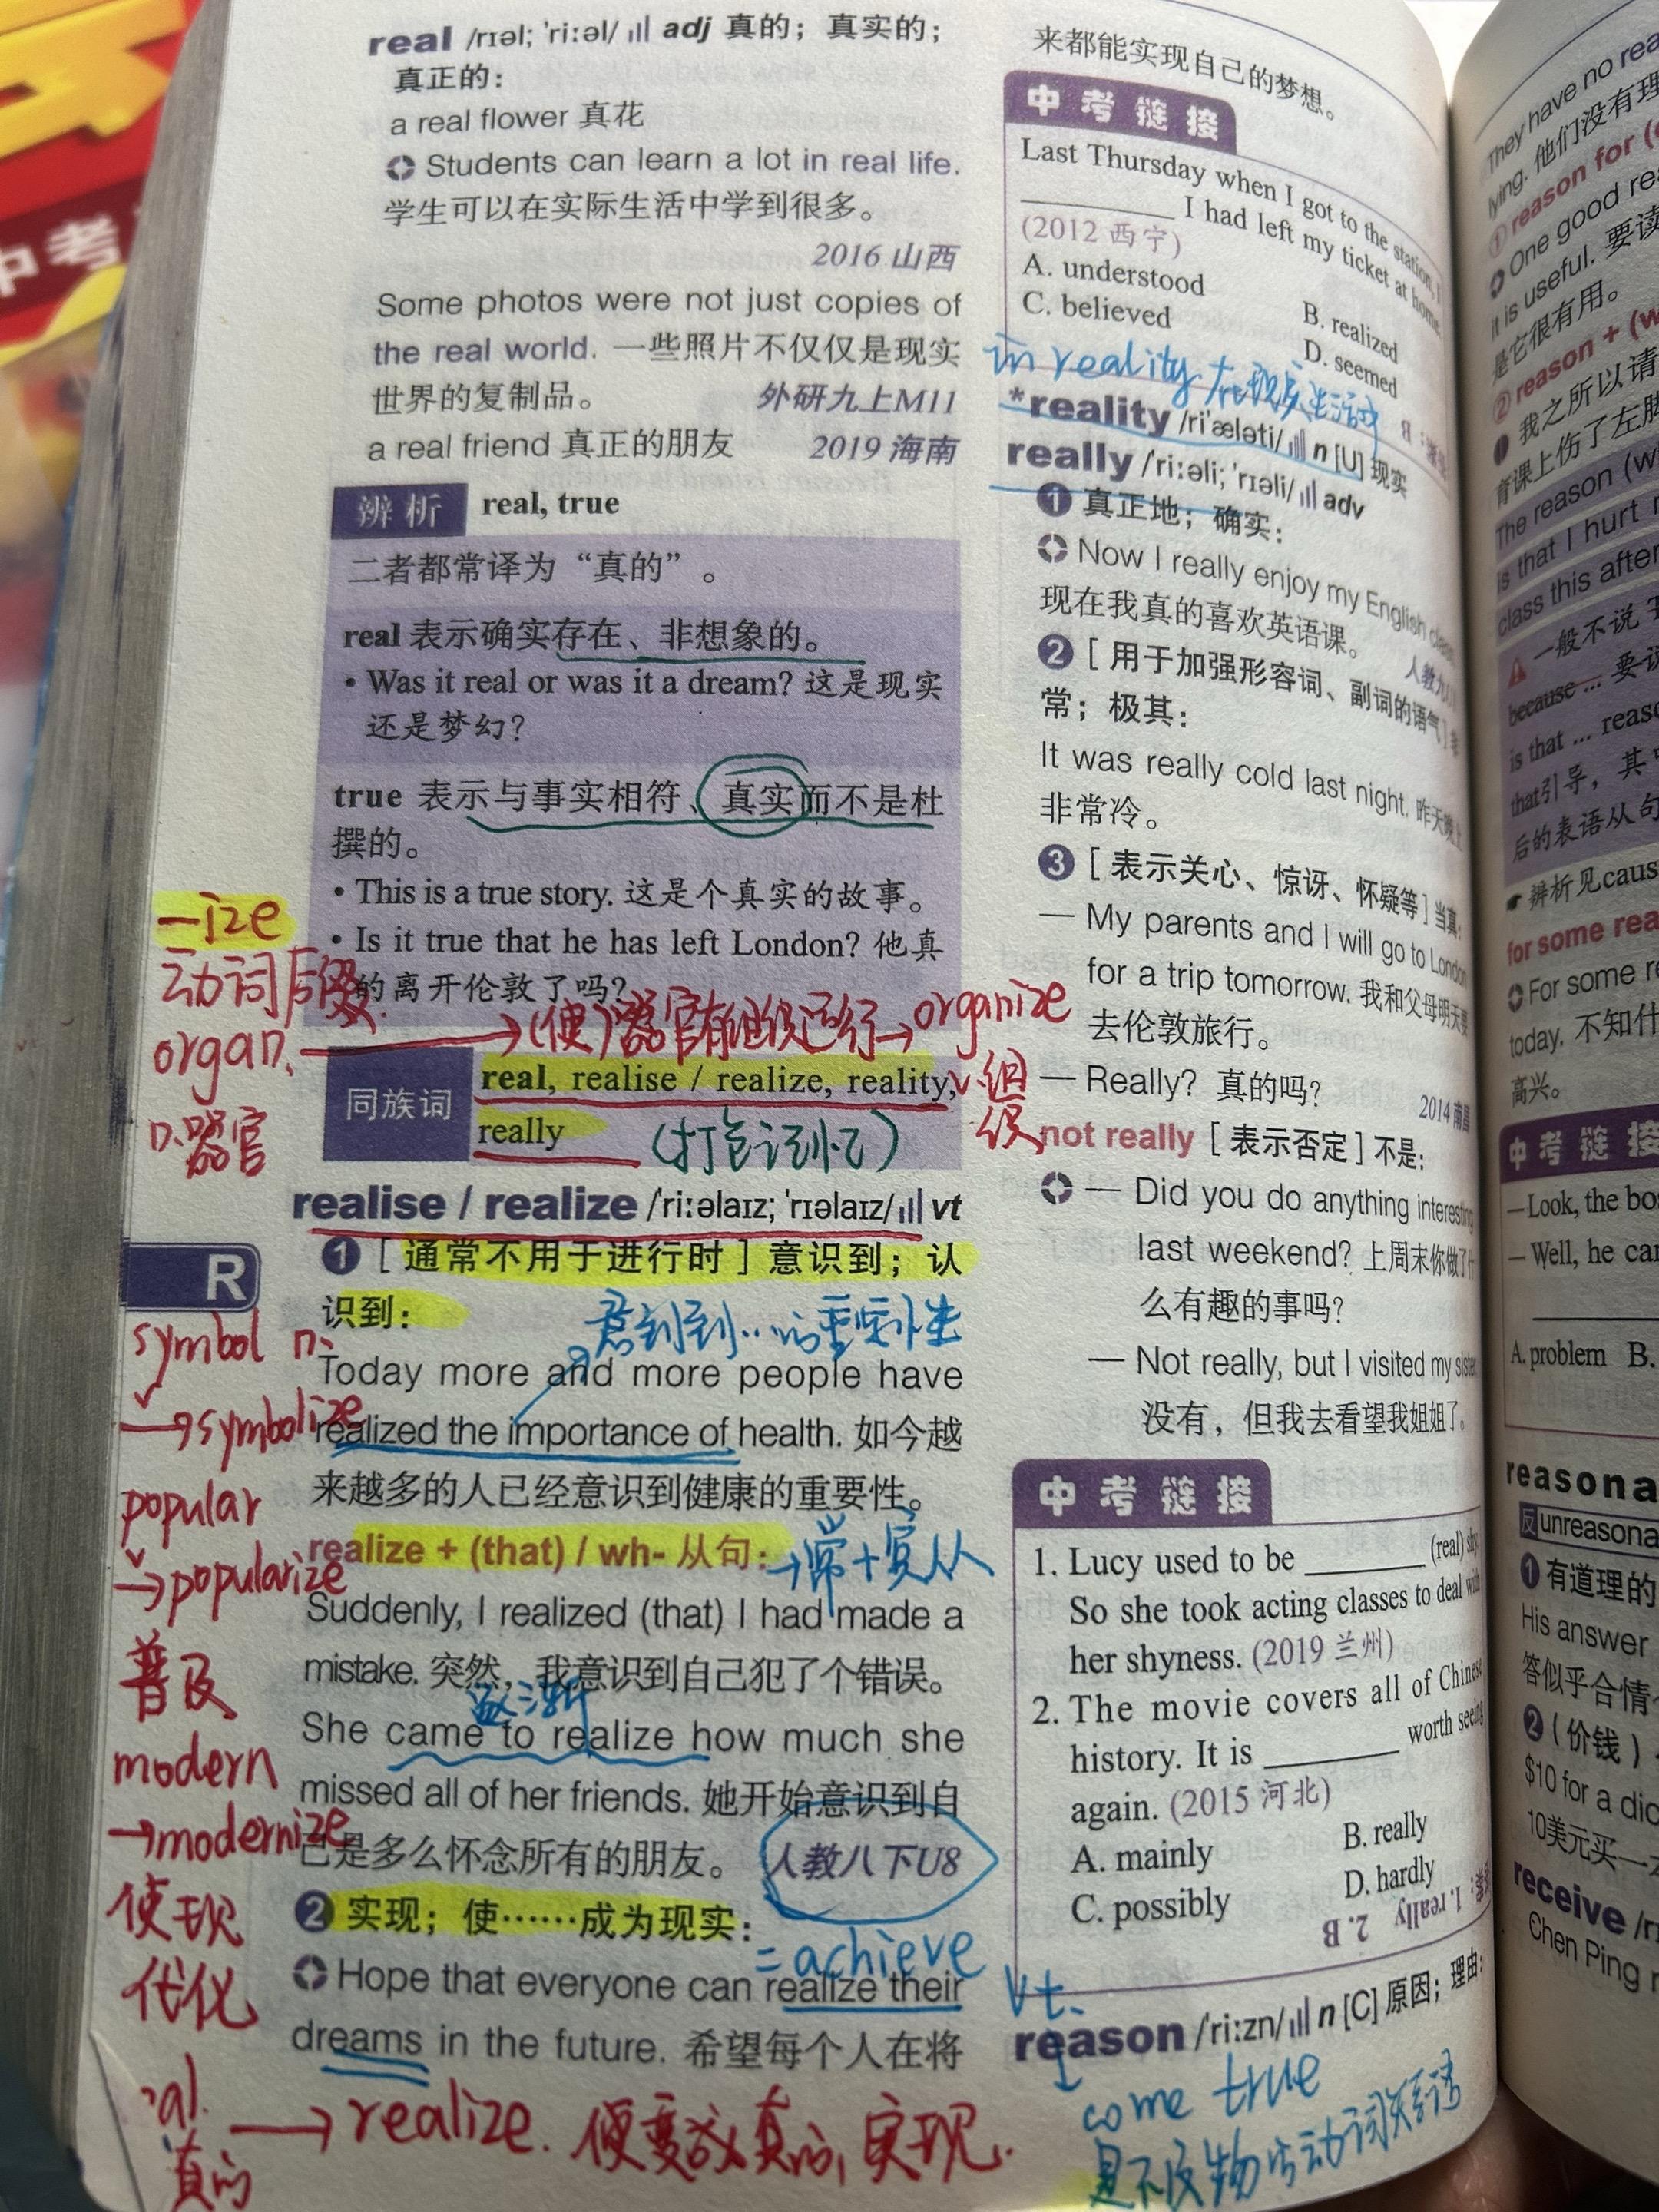 中考
real /rɪəl; ˈriːəl/ adj 真的；真实的；
真正的：
a real flower 真花
Students can learn a lot in real life.
学生可以在实际生活中学到很多。
2016 山西
Some photos were not just copies of
the real world. 一些照片不仅仅是现实
世界的复制品。 外研九上M11
a real friend 真正的朋友 2019 海南
辨析 real, true
二者都常译为“真的”。
real 表示确实存在、非想象的。
• Was it real or was it a dream? 这是现实
还是梦幻？
true 表示与事实相符、真实而不是杜
撰的。
• This is a true story. 这是个真实的故事。
• Is it true that he has left London? 他真
的离开伦敦了吗？
-ize
动词后缀.
organ. → (使)器官有组织运行 → organize
n.器官
v.组
织
同族词 real, realise / realize, reality,
really (打包记忆)
realise / realize /ˈriːəlaɪz; ˈrɪəlaɪz/ vt
❶ [ 通常不用于进行时 ] 意识到；认
识到：
意识到…的重要性
Today more and more people have
realized the importance of health. 如今越
来越多的人已经意识到健康的重要性。
realize + (that) / wh- 从句： →常+宾从
Suddenly, I realized (that) I had made a
mistake. 突然，我意识到自己犯了个错误。
逐渐
She came to realize how much she
missed all of her friends. 她开始意识到自
己是多么怀念所有的朋友。 人教八下U8
❷ 实现；使……成为现实：
= achieve
Hope that everyone can realize their
dreams in the future. 希望每个人在将
R
symbol n.
→symbolize
popular
→popularize
普及
modern
→modernize
使现
代化
真的
→ realize. 使变成真的, 实现.
来都能实现自己的梦想。
中考链接
Last Thursday when I got to the station, I
______ I had left my ticket at home.
(2012 西宁)
A. understood
B. realized
C. believed
D. seemed
in reality 在现实生活中
*reality /riˈæləti/ n [U] 现实
really /ˈriːəli; ˈrɪəli/ adv
❶ 真正地；确实：
Now I really enjoy my English class.
现在我真的喜欢英语课。
❷ [ 用于加强形容词、副词的语气 ] 非
常；极其：
It was really cold last night. 昨天晚上
非常冷。
❸ [ 表示关心、惊讶、怀疑等 ] 当真：
— My parents and I will go to London
for a trip tomorrow. 我和父母明天要
去伦敦旅行。
— Really? 真的吗？
2014 南昌
not really [ 表示否定 ] 不是：
— Did you do anything interesting
last weekend? 上周末你做了什
么有趣的事吗？
— Not really, but I visited my sister.
没有，但我去看望我姐姐了。
中考链接
1. Lucy used to be ______ (real) shy.
So she took acting classes to deal with
her shyness. (2019 兰州)
2. The movie covers all of Chinese
history. It is ______ worth seeing
again. (2015 河北)
A. mainly
B. really
C. possibly
D. hardly
1. really 2. B
vt.
reason /ˈriːzn/ n [C] 原因；理由：
come true
是不及物动词短语
They have no rea
lying. 他们没有理
① reason for (
One good rea
it is useful. 要读
是它很有用。
② reason + (w
我之所以请
育课上伤了左脚
The reason (w
is that I hurt
class this after
一般不说
because ... 要说
is that ... reaso
that引导，其
后的表语从句
辨析见caus
for some rea
For some re
today. 不知什
高兴。
中考链接
—Look, the bo
—Well, he ca
A. problem B.
reasona
反 unreasona
❶ 有道理的
His answer
答似乎合情
❷（价钱）
$10 for a dic
10美元买一
receive /r
Chen Ping